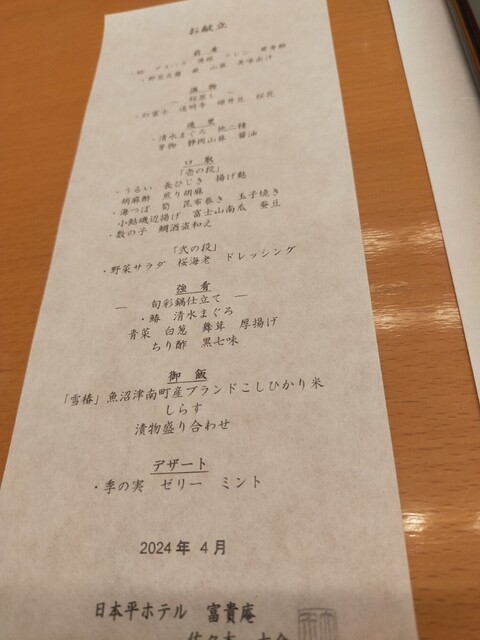 お献立
前菜
・蛸 アスパラ 薄揚 ウレシ 黄身酢
・野菜豆腐 菜 山葵 美味出汁
温物
― 桜蒸し ―
・紅富士 道明寺 桜花
造里
・清水まぐろ 他二種
芽物 静岡山葵 醤油
口取
「壱の段」
・うるい 長ひじき 揚げ麩
胡麻酢 煎り胡麻
・海つぼ 筍 昆布巻き 玉子焼き
小鮎磯辺揚げ 富士山南瓜 蚕豆
・数の子 鯛酒盗和え
「弐の段」
・野菜サラダ 桜海老 ドレッシング
強肴
― 旬彩鍋仕立て ―
・鰆 清水まぐろ
青菜 白葱 舞茸 厚揚げ
ちり酢 黒七味
御飯
「雪椿」魚沼津南町産ブランドこしひかり米
しらす
漬物盛り合わせ
デザート
・季の実 ゼリー ミント
2024年 4月
日本平ホテル 富貴庵